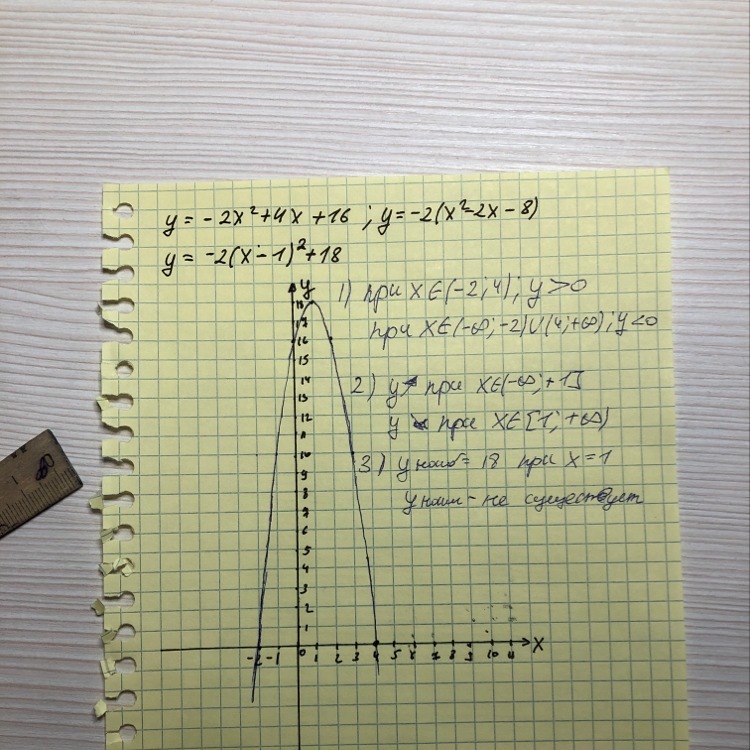 y = -2x²+4x+16 ; y=-2(x²-2x-8)
y = -2(x-1)²+18
1) при x∈(-2;4); y>0
при x∈(-∞;-2)∪(4;+∞); y<0
2) y↗ при x∈(-∞;+1]
y ↘ при x∈[1;+∞)
3) y наиб= 18 при x=1
y наим - не существует
y
18
17
16
15
14
13
12
11
10
9
8
7
6
5
4
3
2
1
-2 -1 0 1 2 3 4 5 6 7 8 9 10 11 x